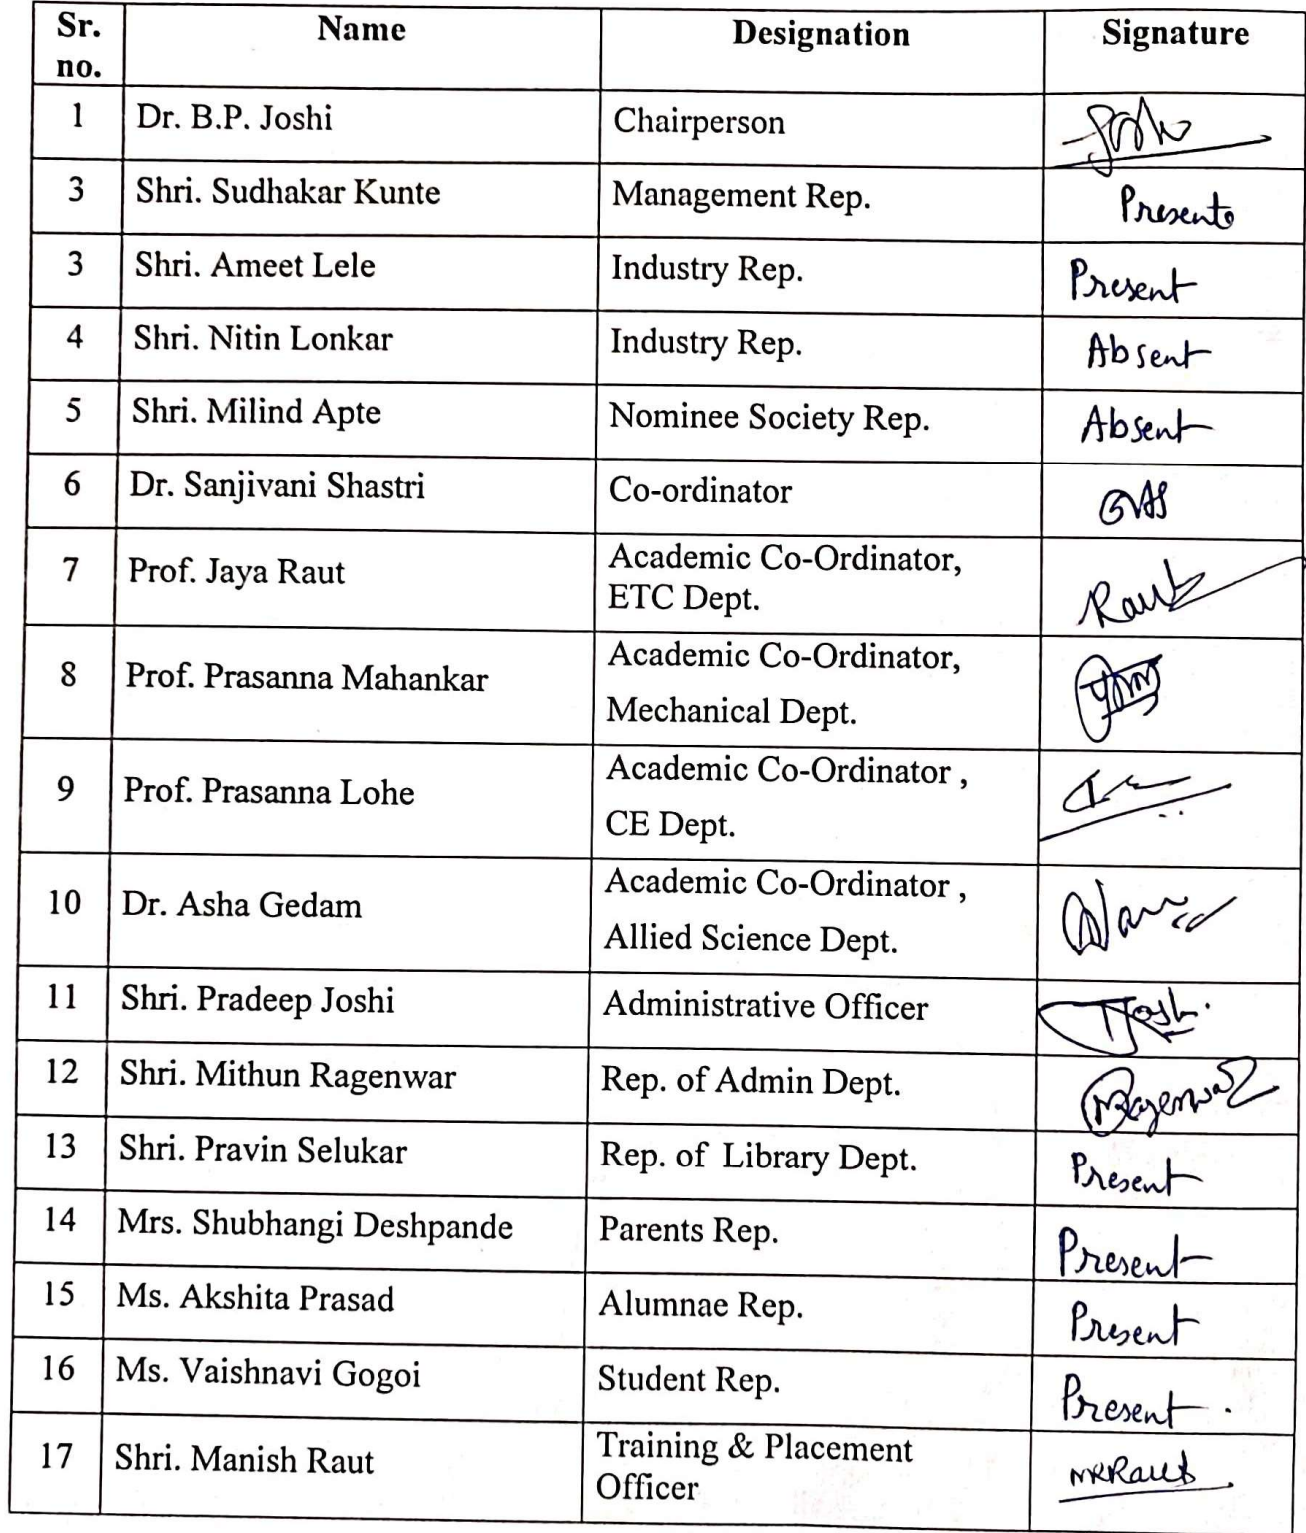 Sr. no. Name Designation Signature
1 Dr. B.P. Joshi Chairperson
3 Shri. Sudhakar Kunte Management Rep. Present
3 Shri. Ameet Lele Industry Rep. Present
4 Shri. Nitin Lonkar Industry Rep. Absent
5 Shri. Milind Apte Nominee Society Rep. Absent
6 Dr. Sanjivani Shastri Co-ordinator
7 Prof. Jaya Raut Academic Co-Ordinator,
ETC Dept. Raut
8 Prof. Prasanna Mahankar Academic Co-Ordinator,
Mechanical Dept.
9 Prof. Prasanna Lohe Academic Co-Ordinator ,
CE Dept.
10 Dr. Asha Gedam Academic Co-Ordinator ,
Allied Science Dept.
11 Shri. Pradeep Joshi Administrative Officer
12 Shri. Mithun Ragenwar Rep. of Admin Dept.
13 Shri. Pravin Selukar Rep. of Library Dept. Present
14 Mrs. Shubhangi Deshpande Parents Rep. Present
15 Ms. Akshita Prasad Alumnae Rep. Present
16 Ms. Vaishnavi Gogoi Student Rep. Present .
17 Shri. Manish Raut Training & Placement
Officer